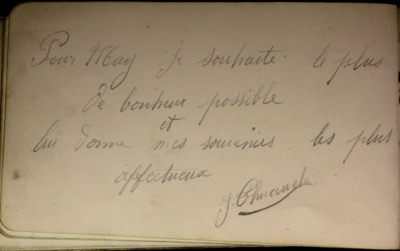 Pour May je souhaite le plus
de bonheur possible
lui donne et mes souvenirs les plus
affectueux